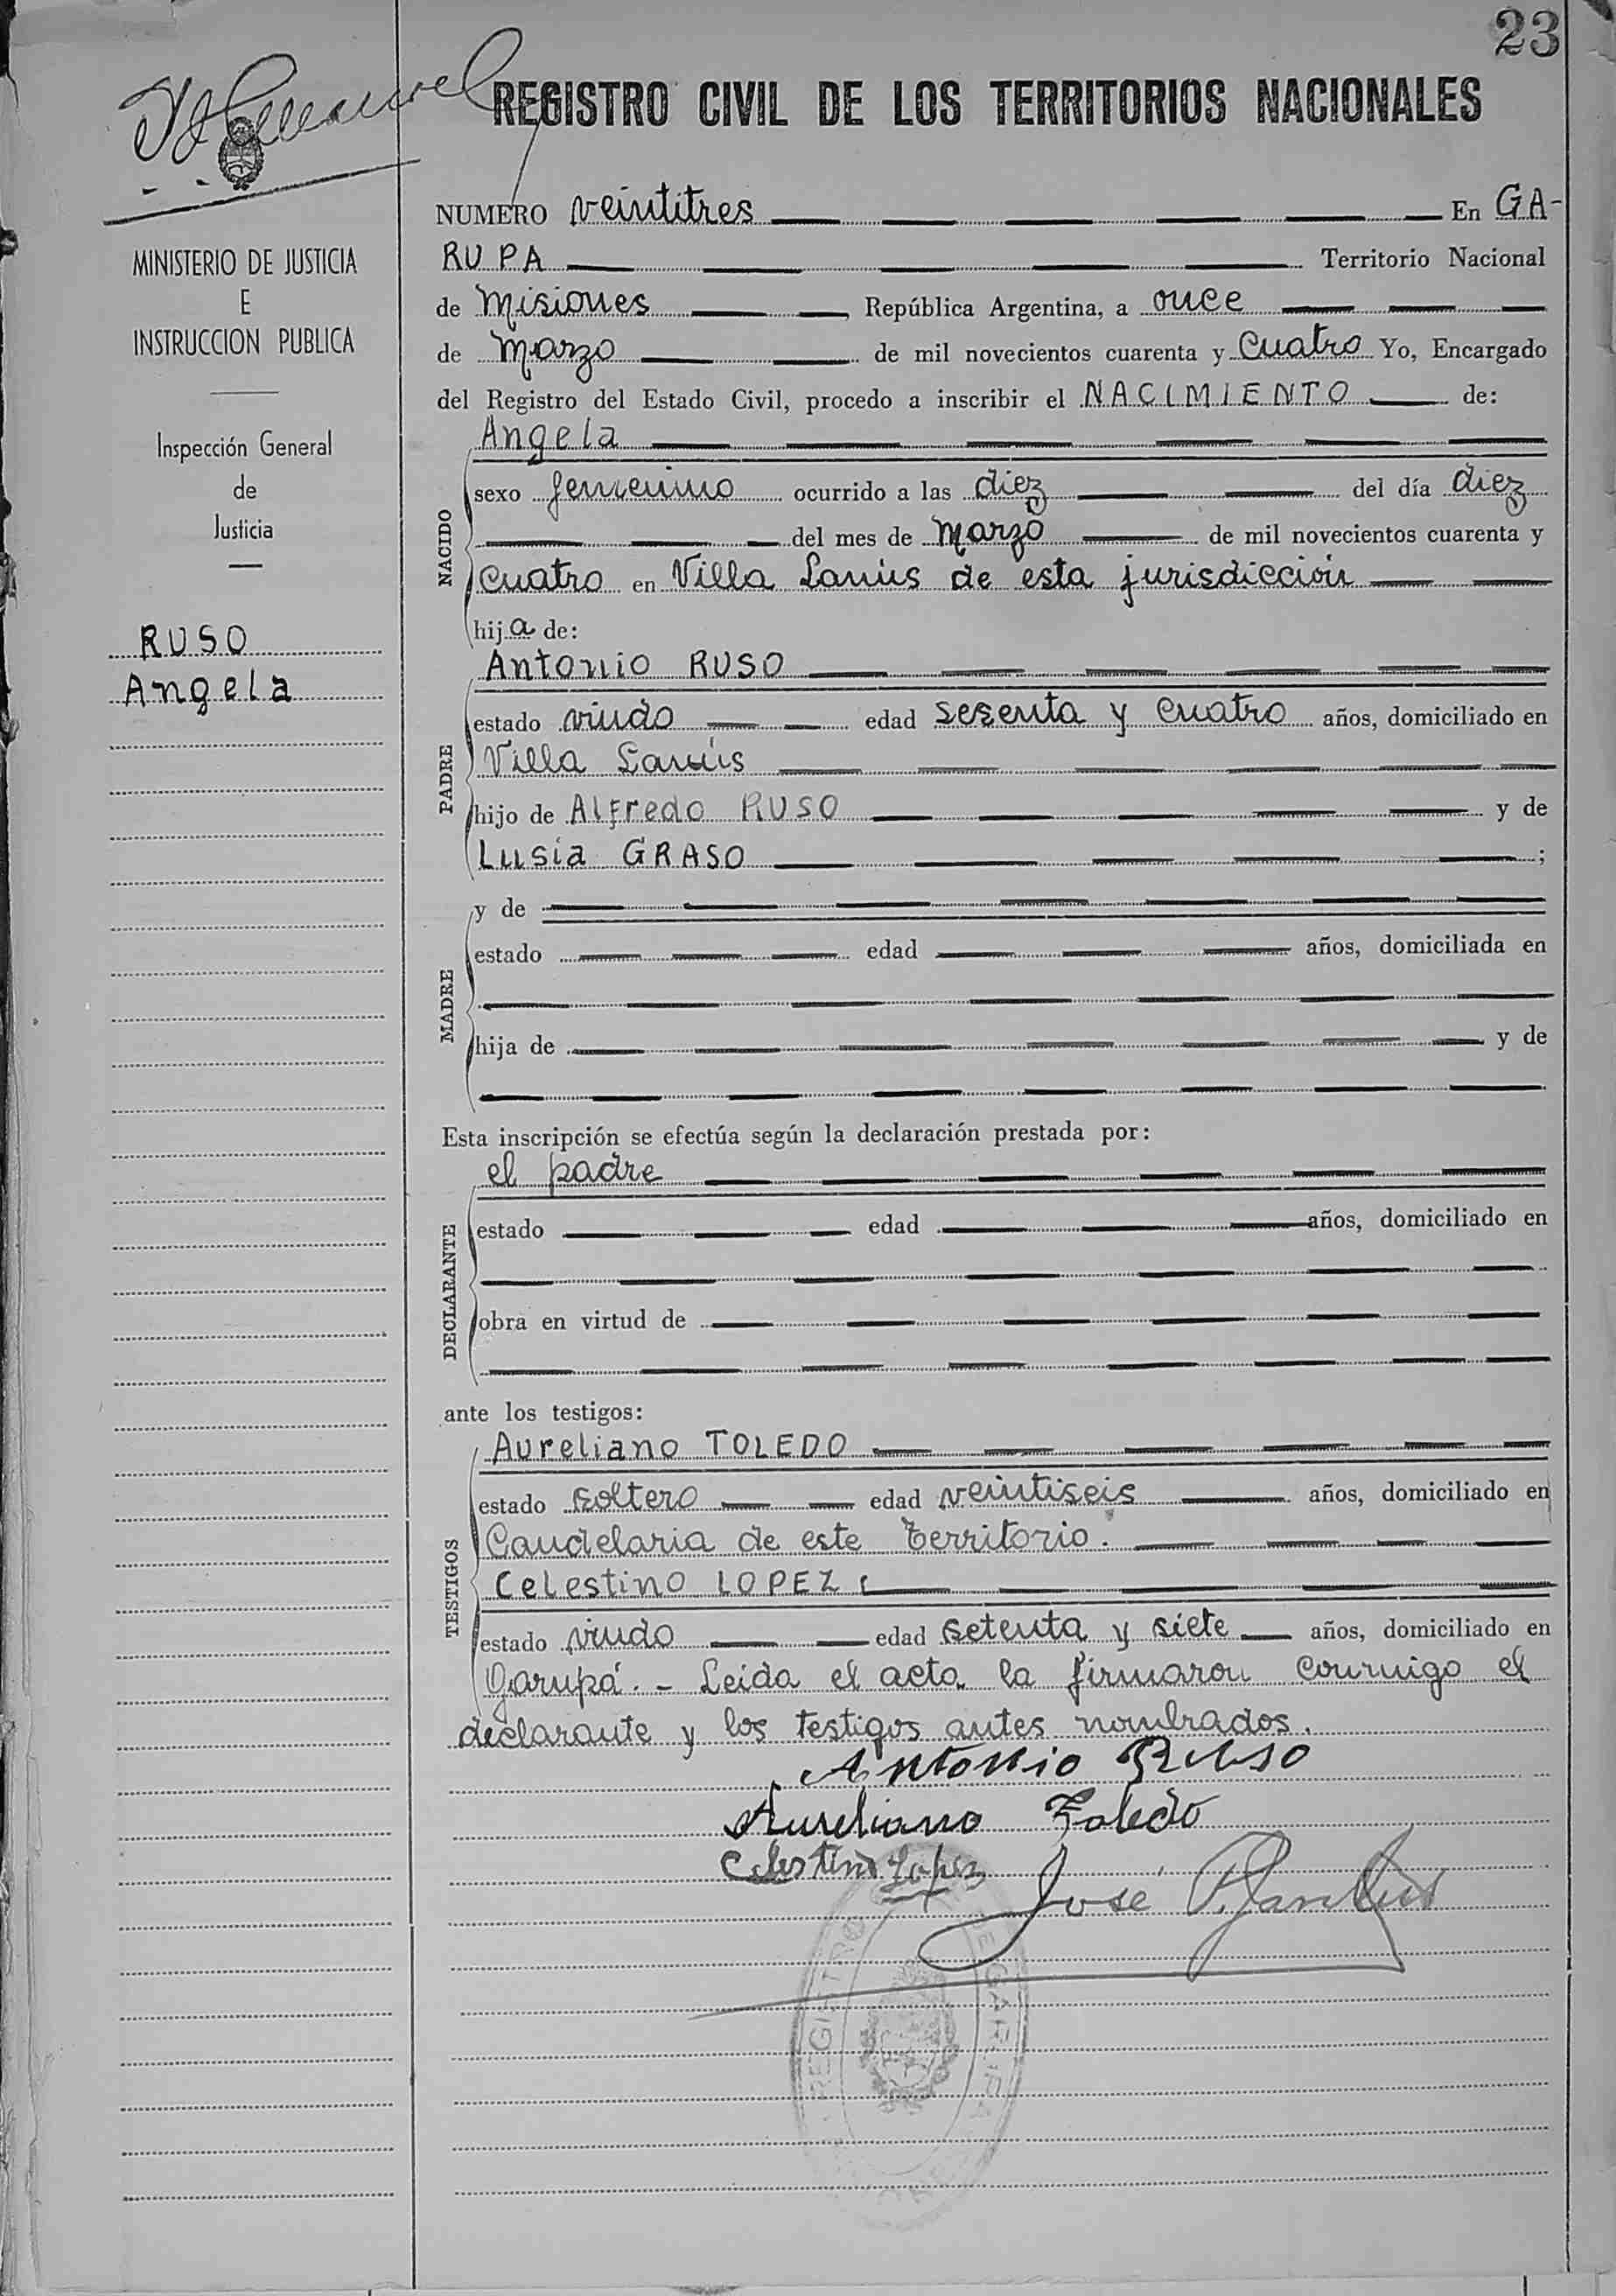 23
REGISTRO CIVIL DE LOS TERRITORIOS NACIONALES
MINISTERIO DE JUSTICIA
E
INSTRUCCION PUBLICA
Inspección General
de
Justicia
RUSO
Angela
NUMERO veintitres En GA-
RUPA Territorio Nacional
de Misiones, República Argentina, a once
de Marzo de mil novecientos cuarenta y Cuatro Yo, Encargado
del Registro del Estado Civil, procedo a inscribir el NACIMIENTO de:
NACIDO
Angela
sexo femenino ocurrido a las diez del día diez
del mes de Marzo de mil novecientos cuarenta y
Cuatro en Villa Lanús de esta jurisdicción
hija de:
PADRE
Antonio RUSO
estado viudo edad sesenta y cuatro años, domiciliado en
Villa Lanús
hijo de Alfredo RUSO y de
Lusia GRASO ;
MADRE
y de
estado edad años, domiciliada en
hija de y de
Esta inscripción se efectúa según la declaración prestada por:
DECLARANTE
el padre
estado edad años, domiciliado en
obra en virtud de
ante los testigos:
TESTIGOS
Aureliano TOLEDO
estado soltero edad veintiseis años, domiciliado en
Candelaria de este Territorio.
Celestino LOPEZ
estado viudo edad setenta y siete años, domiciliado en
Garupá. - Leida el acta la firmaron conmigo el
declarante y los testigos antes nombrados.
Antonio Ruso
Aureliano Toledo
Celestino Lopez
José
REGISTRO
GARUPA